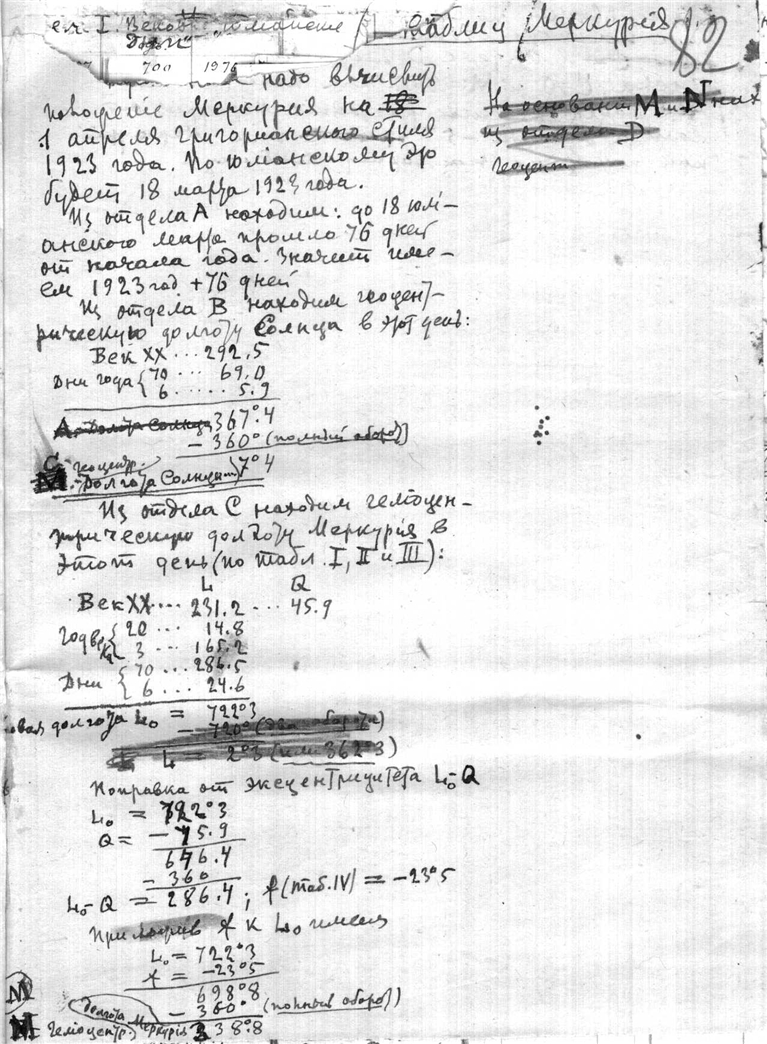 Таблиц Меркурія
82
700 1976
надо вычислить
положеніе Меркурія на 18
1 апреля григоріанского стиля
1923 года. По юліанскому это
будет 18 марта 1923 года.
Из отдела А находим: до 18 юлі-
анского марта прошло 76 дней
от начала года. Значит име-
ем 1923 год + 76 дней
Из отдела В находим геоцент-
рическую долготу Солнца в этот день:
Век XX ... 292,5
Дни года { 70 ... 69.0
6 ...... 5.9
А. Долгота Солнца 367°.4
– 360° (полный оборот)
С геоцентр.
М. – Долгота Солнца 7°4
Из отдела С находим геліоцен-
трическую долготу Меркурія в
этот день (по табл. I, II и III):
L Q
Век XX .... 231.2 ... 45.9
20 ... 14.8
3 ... 165.2
Дни { 70 ... 286.5
6 ... 24.6
долгота L₀ = 722°3
– 720° (два оборота)
L = 2°3 (или 362°3)
Поправка от эксцентрицитета L₀-Q
L₀ = 722°3
Q = – 75.9
646.4
– 360
L₀-Q = 286.4; f (таб. IV) = –23°5
Приложив f к L₀ имеем
L₀ = 722°3
f = –23°5
М 698°8
долгота – 360° (полный оборот)
М – Геліоцентр. Меркурія 338°.8
На основании М и N них
из отдела D
геоцент